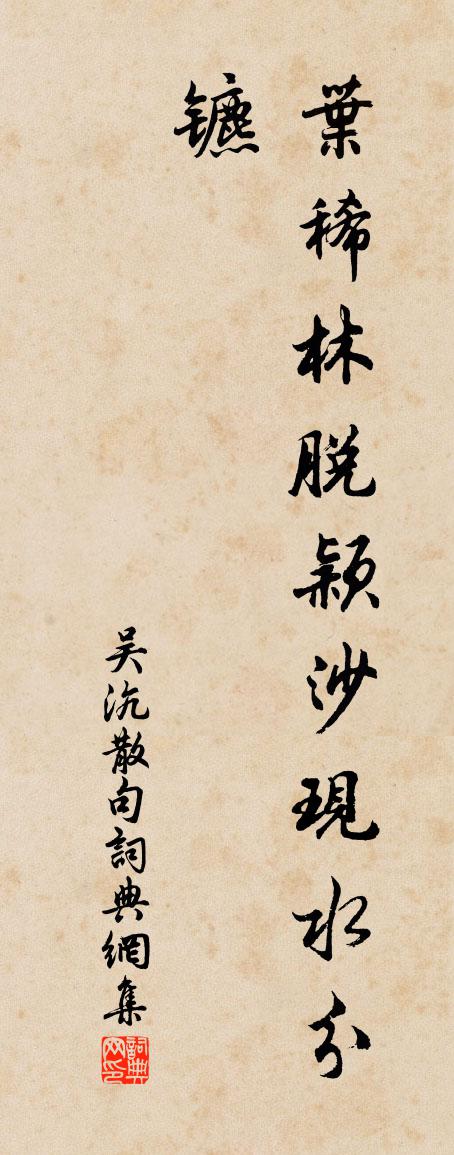 葉稀林脱穎沙現水分
鑣
吴沆散句詞典網集
詞典
网印